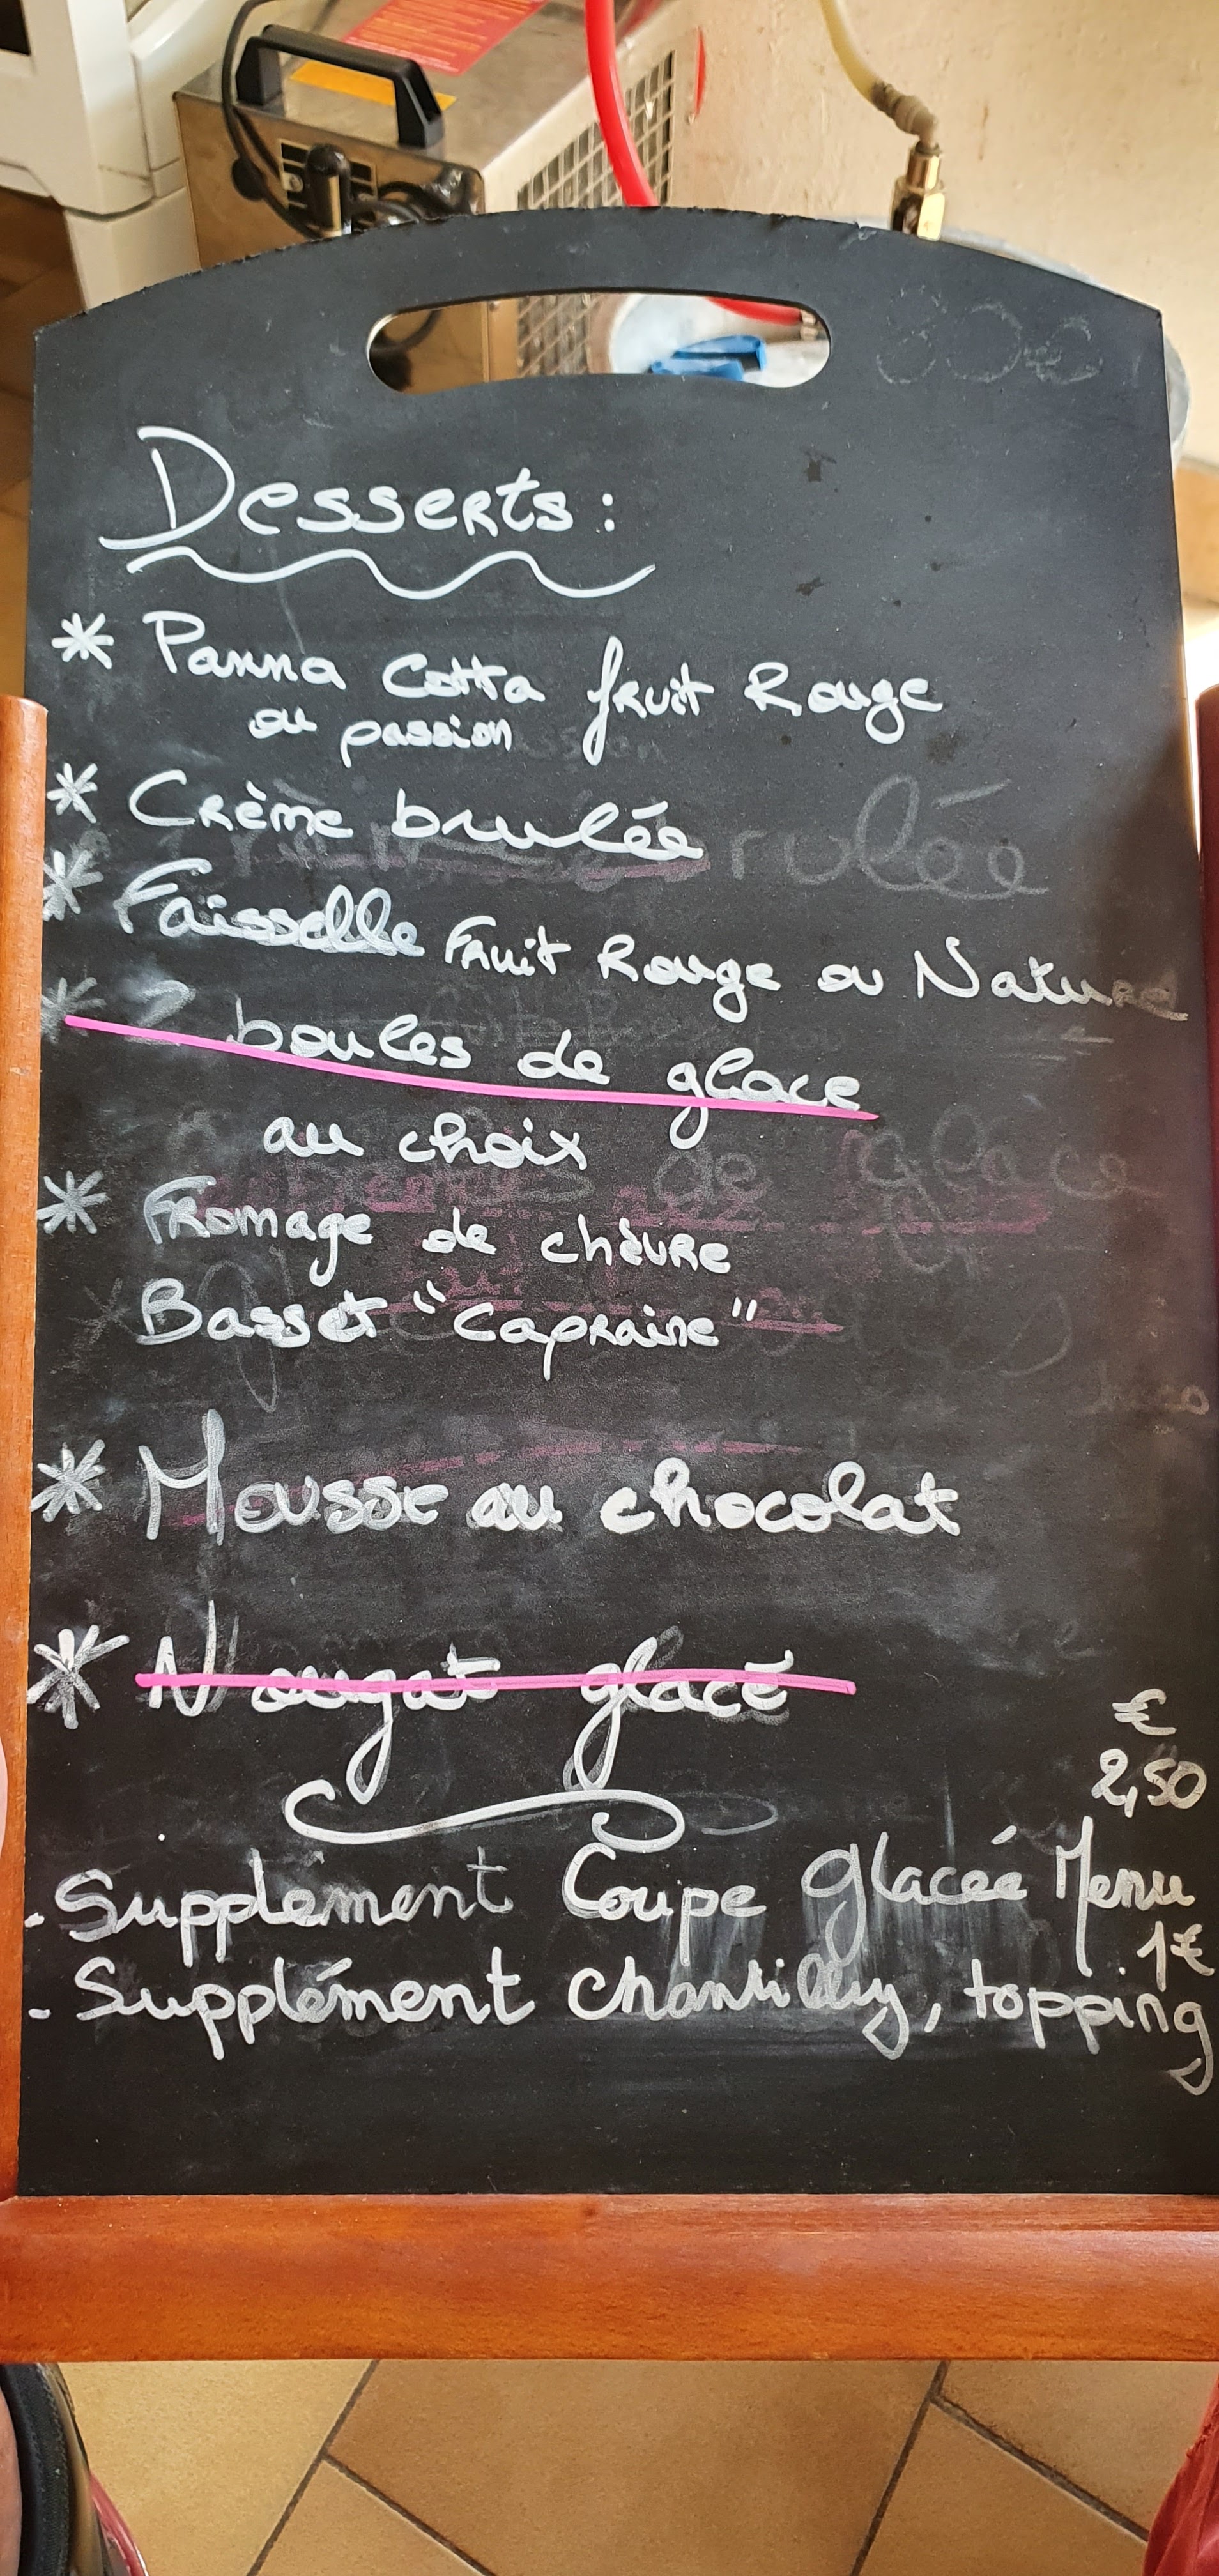 Desserts :
* Panna Cotta fruit Rouge
ou passion
* Crème brulée
* Faisselle Fruit Rouge ou Nature
* 2 boules de glace
au choix
* Fromage de chèvre
Basset "Capraine"
* Mousse au chocolat
* Nougat glacé
€
2,50
- Supplément Coupe Glaceé Menu
1€
- Supplément Chantilly, topping